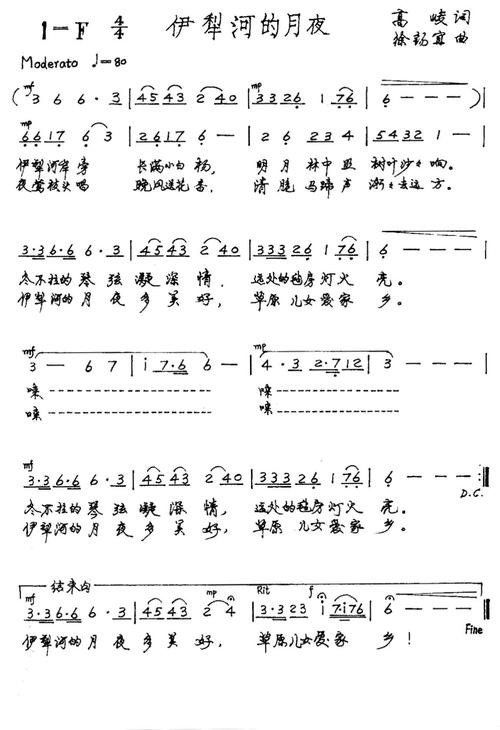 1=F 4/4 伊犁河的月夜 高峻词
徐锡宜曲
Moderato ♩=80
mf mp
( 3 6 6 · 3 | 45 43 2 40 | 3 3 3 2 6 1 76 | 6 - - - )
6 6 1 7 6 - | 2 6 1 7 6 - | 2 6 2 3 4 | 5 4 3 2 1 - |
伊犁河岸旁 长满小白杨, 明月林中照 树叶沙沙响。
夜莺枝头唱 晚风送花香, 清脆马蹄声 渐渐去远方。
3·3 6·6 6·3 | 45 43 2 40 | 3 3 3 2 6 1 76 | 6 - - - |
冬不拉的琴弦凝深情, 远处的毡房灯火亮。
伊犁河的月夜多美好, 草原儿女爱家乡。
mf mp
3 - 6 7 | i 7·6 6 - | 4·3 2·7 1 2 | 3 - - - |
味 味
味 味
mf
3·3 6·6 6·3 | 45 43 2 40 | 3 3 3 2 6 1 76 | 6 - - - :||
D.C.
冬不拉的琴弦凝深情, 远处的毡房灯火亮。
伊犁河的月夜多美好, 草原儿女爱家乡。
结束句
mf mp Rit f
3·3 6·6 6·3 | 45 43 2 4 | 3·3 2 3 i 7·i 7 6 | 6 - - - ||
Fine
伊犁河的月夜多美好, 草原儿女爱家乡!